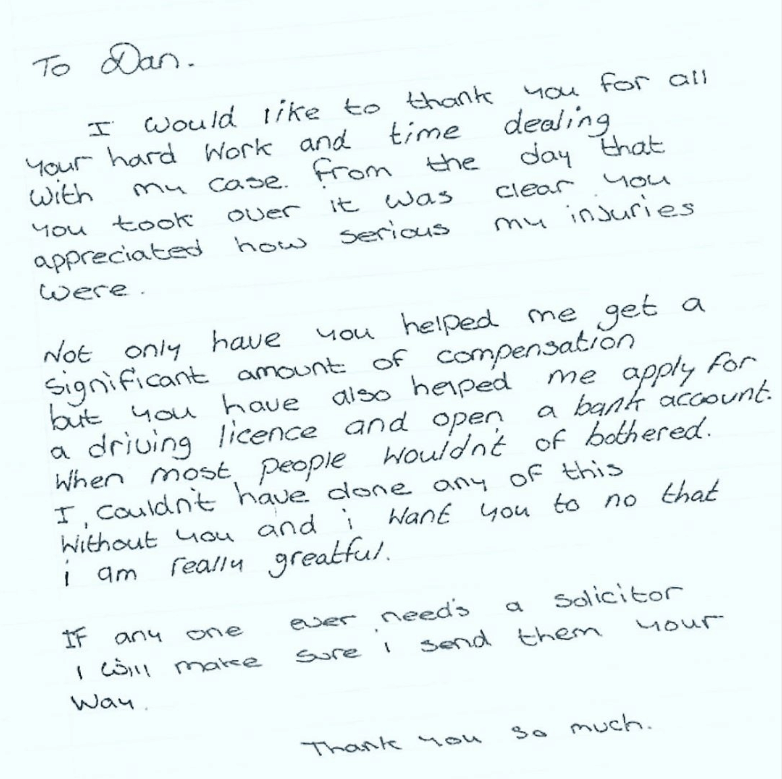 To Dan.
I would like to thank you for all
your hard work and time dealing
with my case. From the day that
you took over it was clear you
appreciated how serious my injuries
were.
Not only have you helped me get a
significant amount of compensation
but you have also helped me apply for
a driving licence and open a bank account.
When most people wouldn't of bothered.
I couldn't have done any of this
without you and i want you to no that
i am really greatful.
If any one ever need's a solicitor
I will make sure i send them your
way.
Thank you so much.